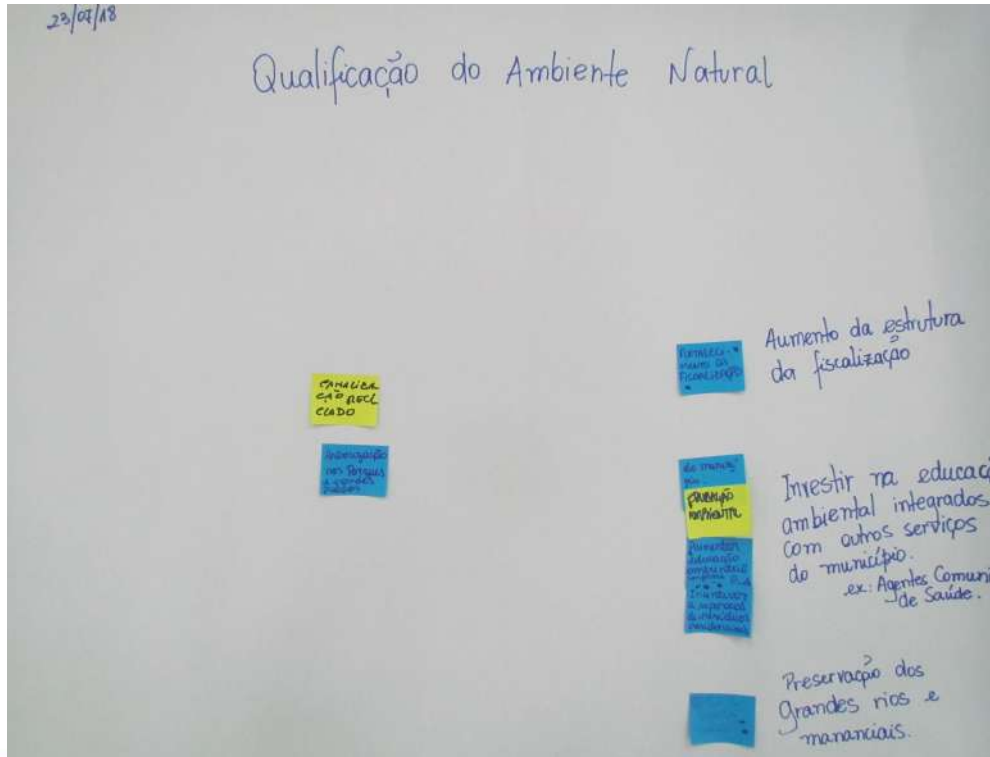 23/07/18
Qualificação do Ambiente Natural
CANALIZA
ÇÃO RECI
CLADO
nos Parques
e grandes
FORTALECI-
MENTO DA
FISCALIZAÇÃO
Aumento da estrutura
da fiscalização
do municí
pio.
EDUCAÇÃO
AMBIENTAL
Aumentar
educação
ambiental
Incentivos
Investir na educaç
ambiental integrados
com outros serviços
do município.
ex: Agentes Comuni
de Saúde.
Preservação dos
grandes rios e
mananciais.